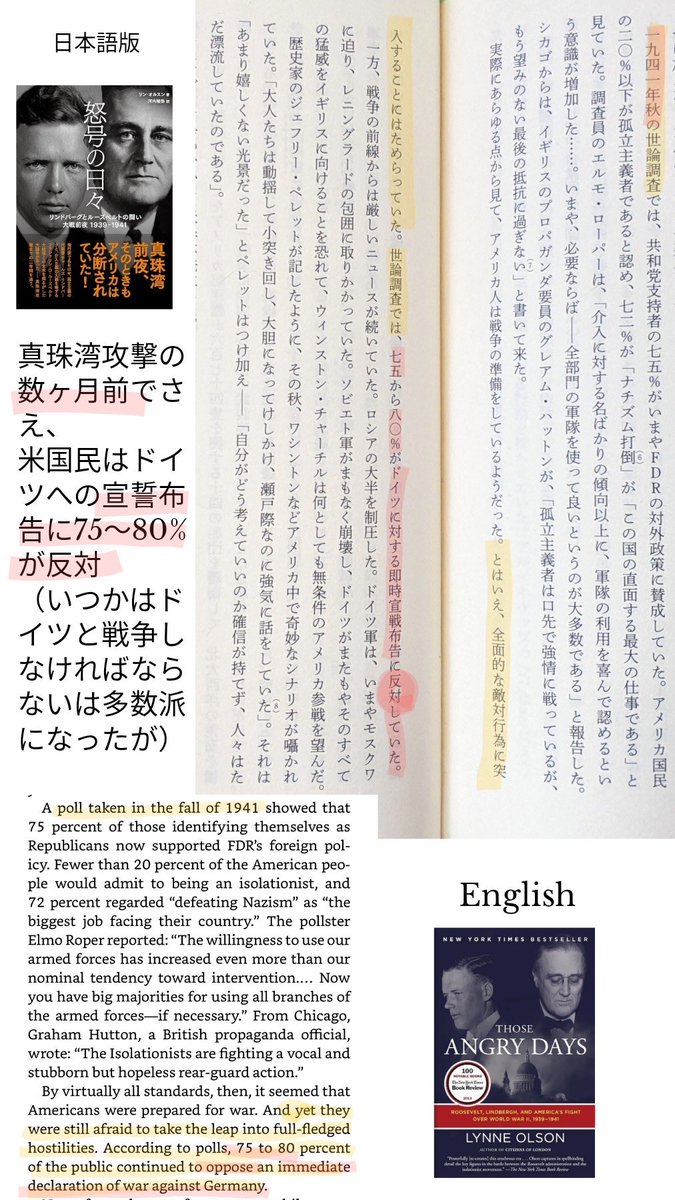 日本語版
リン・オルスン 著
河内隆弥 訳
怒号の日々
リンドバーグとルーズベルトの闘い
大戦前夜 1939-1941
真珠湾
前夜、
そのときも
アメリカは
分断され
ていた!
真珠湾攻撃の
数ヶ月前でさ
え、
米国民はドイ
ツへの宣誓布
告に75〜80%
が反対
（いつかはド
イツと戦争し
なければなら
ないは多数派
になったが）
一九四一年秋の世論調査では、共和党支持者の七五％がいまやFDRの対外政策に賛成していた。アメリカ国民
の二〇％以下が孤立主義者であると認め、七二％が「ナチズム打倒(6)」が「この国の直面する最大の仕事である」と
見ていた。調査員のエルモ・ローパーは、「介入に対する名ばかりの傾向以上に、軍隊の利用を喜んで認めるとい
う意識が増加した……。いまや、必要ならば――全部門の軍隊を使って良いというのが大多数である」と報告した。
シカゴからは、イギリスのプロパガンダ要員のグレアム・ハットンが、「孤立主義者は口先で強情に戦っているが、
もう望みのない最後の抵抗に過ぎない(7)」と書いて来た。
実際にあらゆる点から見て、アメリカ人は戦争の準備をしているようだった。とはいえ、全面的な敵対行為に突
入することにはためらっていた。世論調査では、七五から八〇％がドイツに対する即時宣戦布告に反対していた。
一方、戦争の前線からは厳しいニュースが続いていた。ロシアの大半を制圧した。ドイツ軍は、いまやモスクワ
に迫り、レニングラードの包囲に取りかかっていた。ソビエト軍がまもなく崩壊し、ドイツがまたもやそのすべて
の猛威をイギリスに向けることを恐れて、ウィンストン・チャーチルは何としても無条件のアメリカ参戦を望んだ。
歴史家のジェフリー・ペレットが記したように、その秋、ワシントンなどアメリカ中で奇妙なシナリオが囁かれ
ていた。「大人たちは動揺して小突き回し、大胆になってけしかけ、瀬戸際なのに強気に話をしていた(8)」。それは
「あまり嬉しくない光景だった」とペレットはつけ加え――「自分がどう考えていいのか確信が持てず、人々はた
だ漂流していたのである」。
A poll taken in the fall of 1941 showed that
75 percent of those identifying themselves as
Republicans now supported FDR's foreign pol-
icy. Fewer than 20 percent of the American peo-
ple would admit to being an isolationist, and
72 percent regarded “defeating Nazism” as “the
biggest job facing their country.” The pollster
Elmo Roper reported: “The willingness to use our
armed forces has increased even more than our
nominal tendency toward intervention.… Now
you have big majorities for using all branches of
the armed forces—if necessary.” From Chicago,
Graham Hutton, a British propaganda official,
wrote: “The Isolationists are fighting a vocal and
stubborn but hopeless rear-guard action.”
By virtually all standards, then, it seemed that
Americans were prepared for war. And yet they
were still afraid to take the leap into full-fledged
hostilities. According to polls, 75 to 80 percent
of the public continued to oppose an immediate
declaration of war against Germany.
English
NEW YORK TIMES BESTSELLER
THOSE
ANGRY DAYS
100
NOTABLE BOOKS
The New York Times
Book Review
2013
ROOSEVELT, LINDBERGH, AND AMERICA'S FIGHT
OVER WORLD WAR II, 1939–1941
LYNNE OLSON
AUTHOR OF CITIZENS OF LONDON